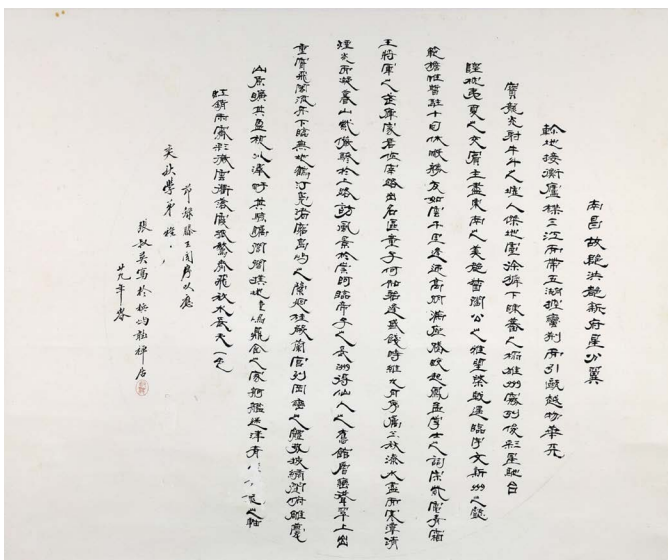 南昌故郡洪都新府星分翼
軫地接衡廬襟三江而帶五湖控蠻荊而引甌越物華天
寶龍光射牛斗之墟人傑地靈徐孺下陳蕃之榻雄州霧列俊彩星馳台
隍枕夷夏之交賓主盡東南之美都督閻公之雅望棨戟遙臨宇文新州之懿
範襜帷暫駐十旬休暇勝友如雲千里逢迎高朋滿座騰蛟起鳳孟學士之詞宗紫電青霜
王將軍之武庫家君作宰路出名區童子何知躬逢盛餞時維九月序屬三秋潦水盡而寒潭清
煙光而凝暮山紫儼驂於上路訪風景於崇阿臨帝子之長洲得仙人之舊館層巒聳翠上出
重霄飛閣流丹下臨無地鶴汀鳧渚窮島嶼之縈迴桂殿蘭宮列岡巒之體勢披繡闥俯雕甍
山原曠其盈視川澤盱其駭矚閭閻撲地鐘鳴鼎食之家舸艦迷津青之軸
虹銷雨霽彩徹雲衢落霞孤鶩齊飛秋水長天一色
節錄滕王閣序以應
秋學弟
張叔英寫於
廿九年春